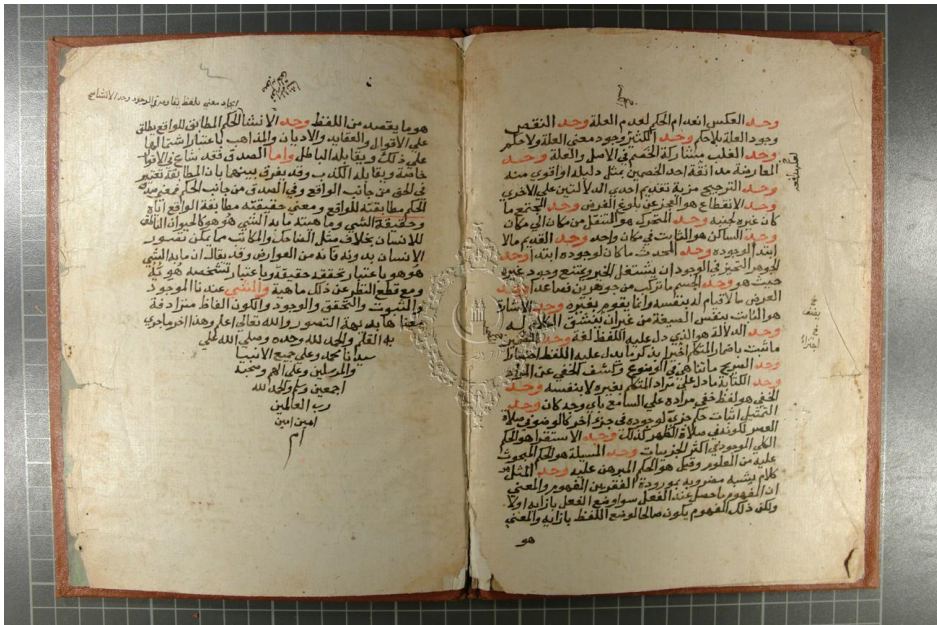 وحد العكس انعدام الحكم لعدم العلة وحد النقض
وجود العلة بلا حكم وحد الكسر وجود معنى العلة ولا حكم
وحد القلب مشاركة الخصم في الاصل والعلة وحد
المعارضة مدافعة احد الخصمين بمثل دليله او اقوي منه
وحد الترجيح مزية تقديم احدي الدلالتين علي الاخري
وحد الانقطاع هو العجز عن بلوغ الغرض وحد
كان غيره لجنبه وحد المتحرك هو المنتقل من مكان الي مكان
وحد الساكن هو الثابت في مكان واحد وحد القديم مالا
ابتدا لوجوده وحد المحدث ما كان لوجوده ابتدا وحد
الجوهر المتحيز في الوجود ان يشتغل الحيز ويمتنع وجود غيره
حيث هو وحد الجسم ما تركب من جوهرين فصاعدا وحد
العرض ما لا قيام له بنفسه وانما يقوم بغيره وحد
هو الثابت بنفس الصيغة من غير ان
وحد الدلالة هو الذي دل عليه اللفظ لغة وحد
ما ثبت باضمار المتكلم يدل عليه اللفظ
وحد الصريح ما تناهي في الوضوح وكشف الخفي عن المراد
وحد الكناية ما دل علي مراد المتكلم بغيره لا بنفسه وحد
الخفي هو لفظ خفي مراده علي السامع باي وجه كان وحد
التمثيل اثبات حكم جزء لوجوده في جزء اخر كالوضوء في صلاة
العصر في صلاة الظهر كذلك وحد الاستقرا هو الحكم
الكلي لوجوده في اكثر الجزييات وحد المسيلة هو الحكم المبحوث
عليه من العلوم وقيل هو الحكم المبرهن عليه وحد المثل
كلام يشبه مضربه بمورده الفرق بين المفهوم والمعني
ان المفهوم ما حصل عند العقل سوا وضع اللفظ بازايه او لا
ولكن ذلك المفهوم يكون صالحا لوضع اللفظ بازايه والمعني
هو
هو ما يقصد من اللفظ وحد الانشا الحكم المطابق للواقع يطلق
علي الاقوال والعقايد والاديان والمذاهب باعتبار اشتمالها
علي ذلك ويقابله الباطل واما الصدق فقد شاع في الاقوال
خاصة ويقابله الكذب وقد يفرق بينهما بان المطابقة تعتبر
في الحق من جانب الواقع وفي الصدق من جانب الحكم
الحكم مطابقته للواقع ومعني حقيقته مطابقة الواقع اياه
وحقيقة الشي وماهيته ما به الشي هو هو كالحيوان الناطق
للانسان بخلاف مثل الضاحك والكاتب مما يمكن تصور
الانسان بدونه فانه من العوارض وقد يقال ان ما به الشي
هو هو باعتبار تحققه حقيقة وباعتبار تشخصه هوية
ومع قطع النظر عن ذلك ماهية والشي عندنا الموجود
والثبوت والتحقق والوجود والكون الفاظ مترادفة
معناها بديهة التصور والله تعالي اعلم وهذا اخر ما جري
به القلم والحمد لله وحده وصلي الله علي
سيدنا محمد وعلي جميع الانبيا
والمرسلين وعلي الهم وصحبه
اجمعين والحمد لله
رب العالمين
امين امين